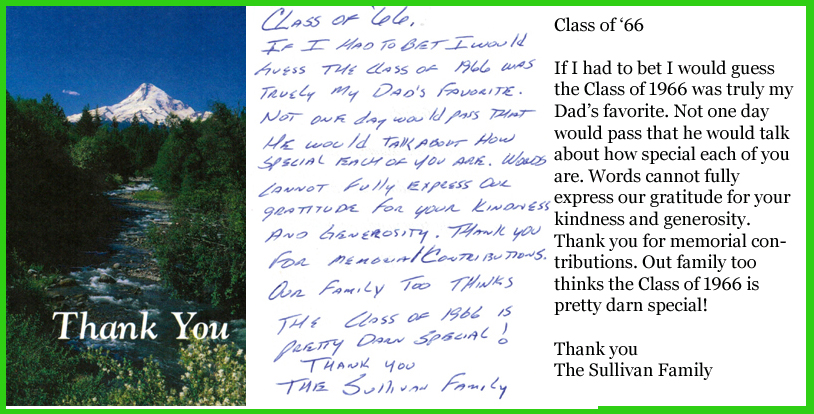 Thank You
CLASS OF '66.
IF I HAD TO BET I WOULD
GUESS THE CLASS OF 1966 WAS
TRUELY MY DAD'S FAVORITE.
NOT ONE DAY WOULD PASS THAT
HE WOULD TALK ABOUT HOW
SPECIAL EACH OF YOU ARE. WORDS
CANNOT FULLY EXPRESS OUR
GRATITUDE FOR YOUR KINDNESS
AND GENEROSITY. THANK YOU
FOR MEMORIAL CONTRIBUTIONS.
OUR FAMILY TOO THINKS
THE CLASS OF 1966 IS
PRETTY DARN SPECIAL!
THANK YOU
THE SULLIVAN FAMILY
Class of ‘66
If I had to bet I would guess
the Class of 1966 was truly my
Dad’s favorite. Not one day
would pass that he would talk
about how special each of you
are. Words cannot fully
express our gratitude for your
kindness and generosity.
Thank you for memorial con-
tributions. Out family too
thinks the Class of 1966 is
pretty darn special!
Thank you
The Sullivan Family